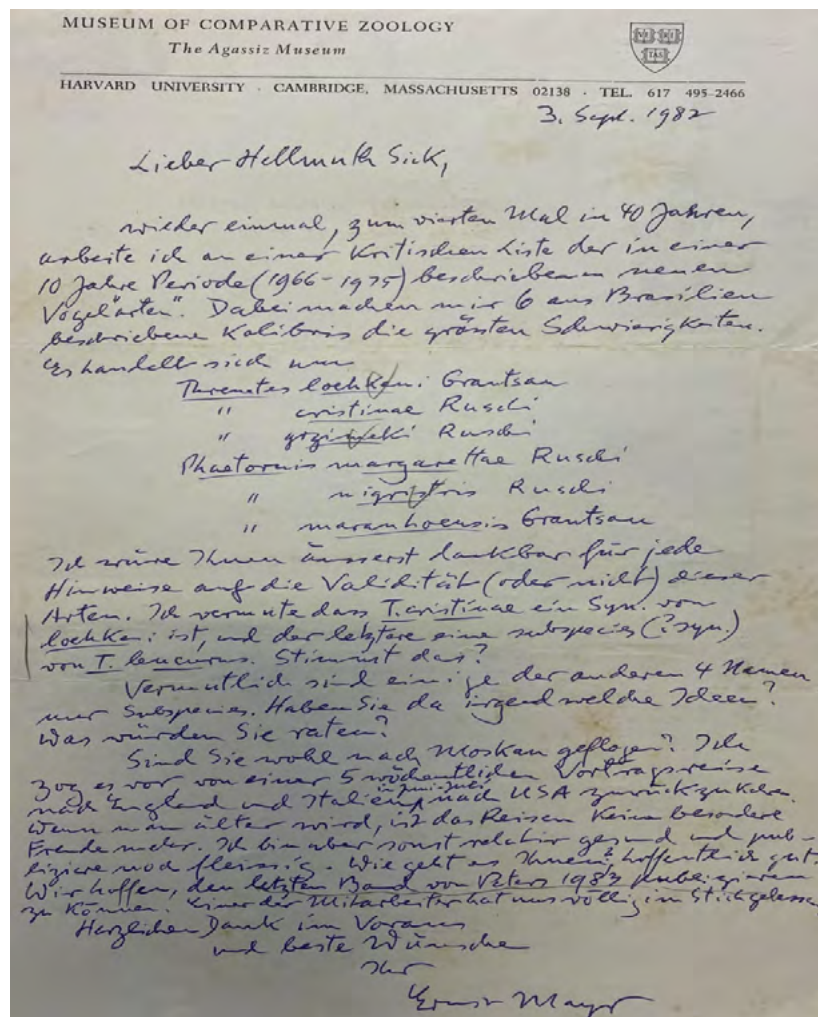 MUSEUM OF COMPARATIVE ZOOLOGY
The Agassiz Museum
VE RI TAS
HARVARD UNIVERSITY · CAMBRIDGE, MASSACHUSETTS 02138 · TEL. 617 495-2466
3. Sept. 1982
Lieber Hellmuth Sick,
wieder einmal, zum vierten Mal in 40 Jahren,
arbeite ich an einer Kritischen Liste der in einer
10 Jahre Periode (1966-1975) beschriebenen neuen
Vogel"arten". Dabei machen mir 6 aus Brasilien
beschriebene Kolibris die grössten Schwierigkeiten.
Es handelt sich um
Threnetes loehkeni Grantsau
" cristinae Ruschi
" Ruschi
Phaetornis margarettae Ruschi
" Ruschi
" maranhoensis Grantsau
Ich wäre Ihnen äusserst dankbar für jede
Hinweise auf die Validität (oder nicht) dieser
Arten. Ich vermute dass T. cristinae ein Syn. von
loehkeni ist, und der letztere eine subspecies (? syn.)
von T. leucurus. Stimmt das?
Vermutlich sind einige der anderen 4 Namen
nur Subspecies. Haben Sie da irgend welche Ideen?
Was würden Sie raten?
Sind Sie wohl nach Moskau geflogen? Ich
zog es vor von einer 5 wöchentlichen Vortragsreise
in Juni-Juli
nach England und Italien nach USA zurückzukehren.
Wenn man älter wird, ist das Reisen keine besondere
Freude mehr. Ich bin aber sonst relativ gesund und pub-
liziere noch fleissig. Wie geht es Ihnen? hoffentlich gut.
Wir hoffen, den letzten Band von Peters 1983 publizieren
zu können. Einer der Mitarbeiter hat uns völlig im Stich gelassen
Herzlichen Dank im Voraus
und beste Wünsche
Ihr
Ernst Mayr